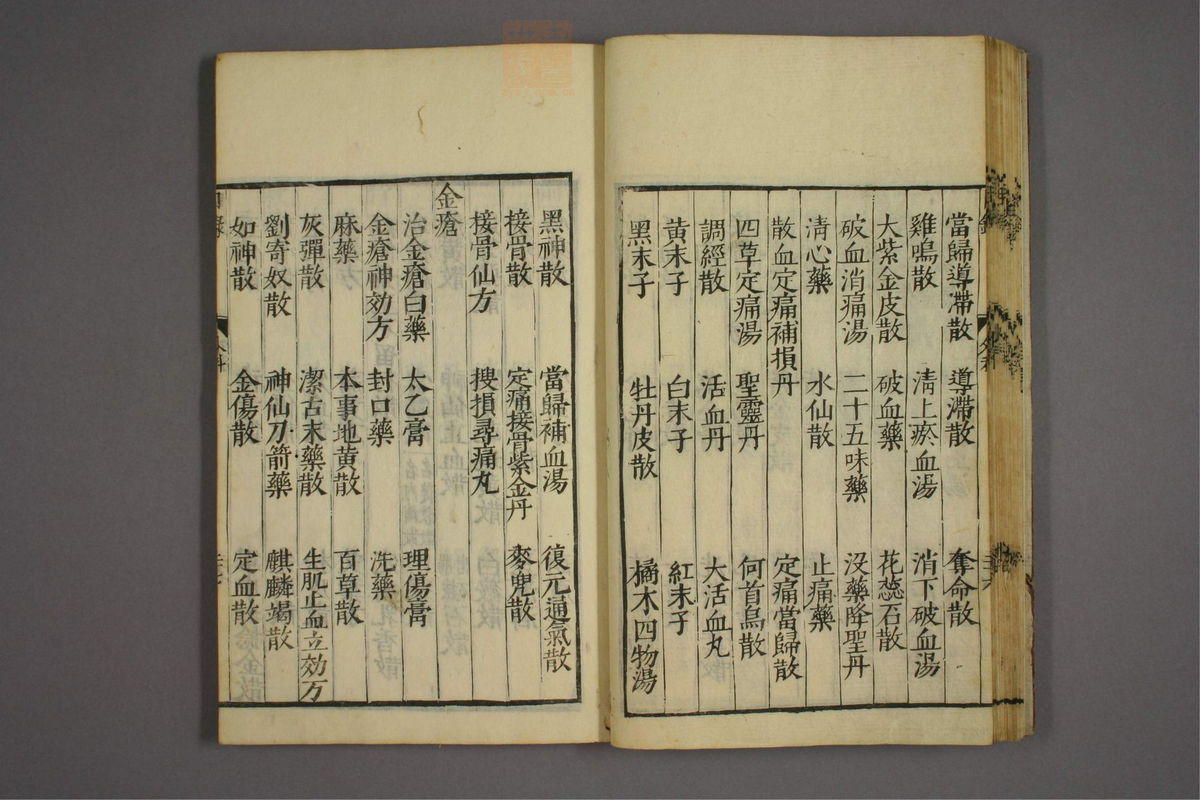 當歸導滯散 導滯散 奪命散
雞鳴散 清上瘀血湯 消下破血湯
大紫金皮散 破血藥 花蕊石散
破血消痛湯 二十五味藥 沒藥降聖丹
清心藥 水仙散 止痛藥
散血定痛補損丹 定痛當歸散
四草定痛湯 聖靈丹 何首烏散
調經散 活血丹 大活血丸
黃末子 白末子 紅末子
黑末子 牡丹皮散 橘木四物湯
黑神散 當歸補血湯 復元通氣散
接骨散 定痛接骨紫金丹 麥兜散
接骨仙方 搜損尋痛丸
金瘡
治金瘡白藥 太乙膏 理傷膏
金瘡神効方 封口藥 洗藥
麻藥 本事地黃散 百草散
灰彈散 潔古末藥散 生肌止血立効方
劉寄奴散 神仙刀箭藥 麒麟竭散
如神散 金傷散 定血散